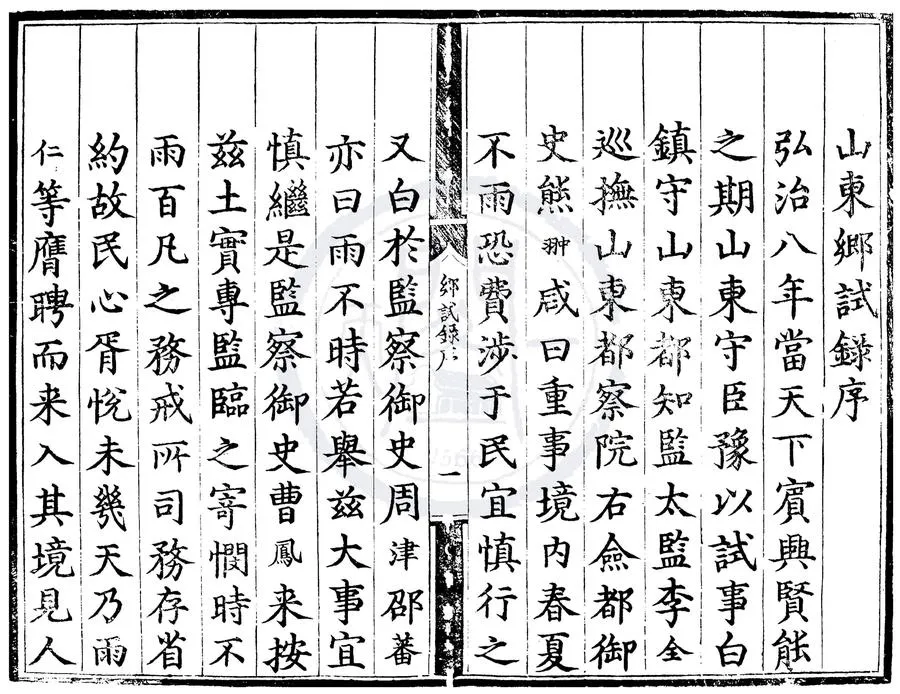 山東鄉試錄序
弘治八年當天下賓興賢能
之期山東守臣豫以試事白
鎮守山東都知監太監李全
巡撫山東都察院右僉都御
史熊翀咸曰重事境内春夏
不雨恐費涉于民宜慎行之
鄉試錄序
一
又白於監察御史周津邵蕃
亦曰雨不時若舉兹大事宜
慎繼是監察御史曹鳳来按
兹土實專監臨之寄憫時不
雨百凡之務戒所司務存省
約故民心胥悅未幾天乃雨
仁等膺聘而来入其境見人